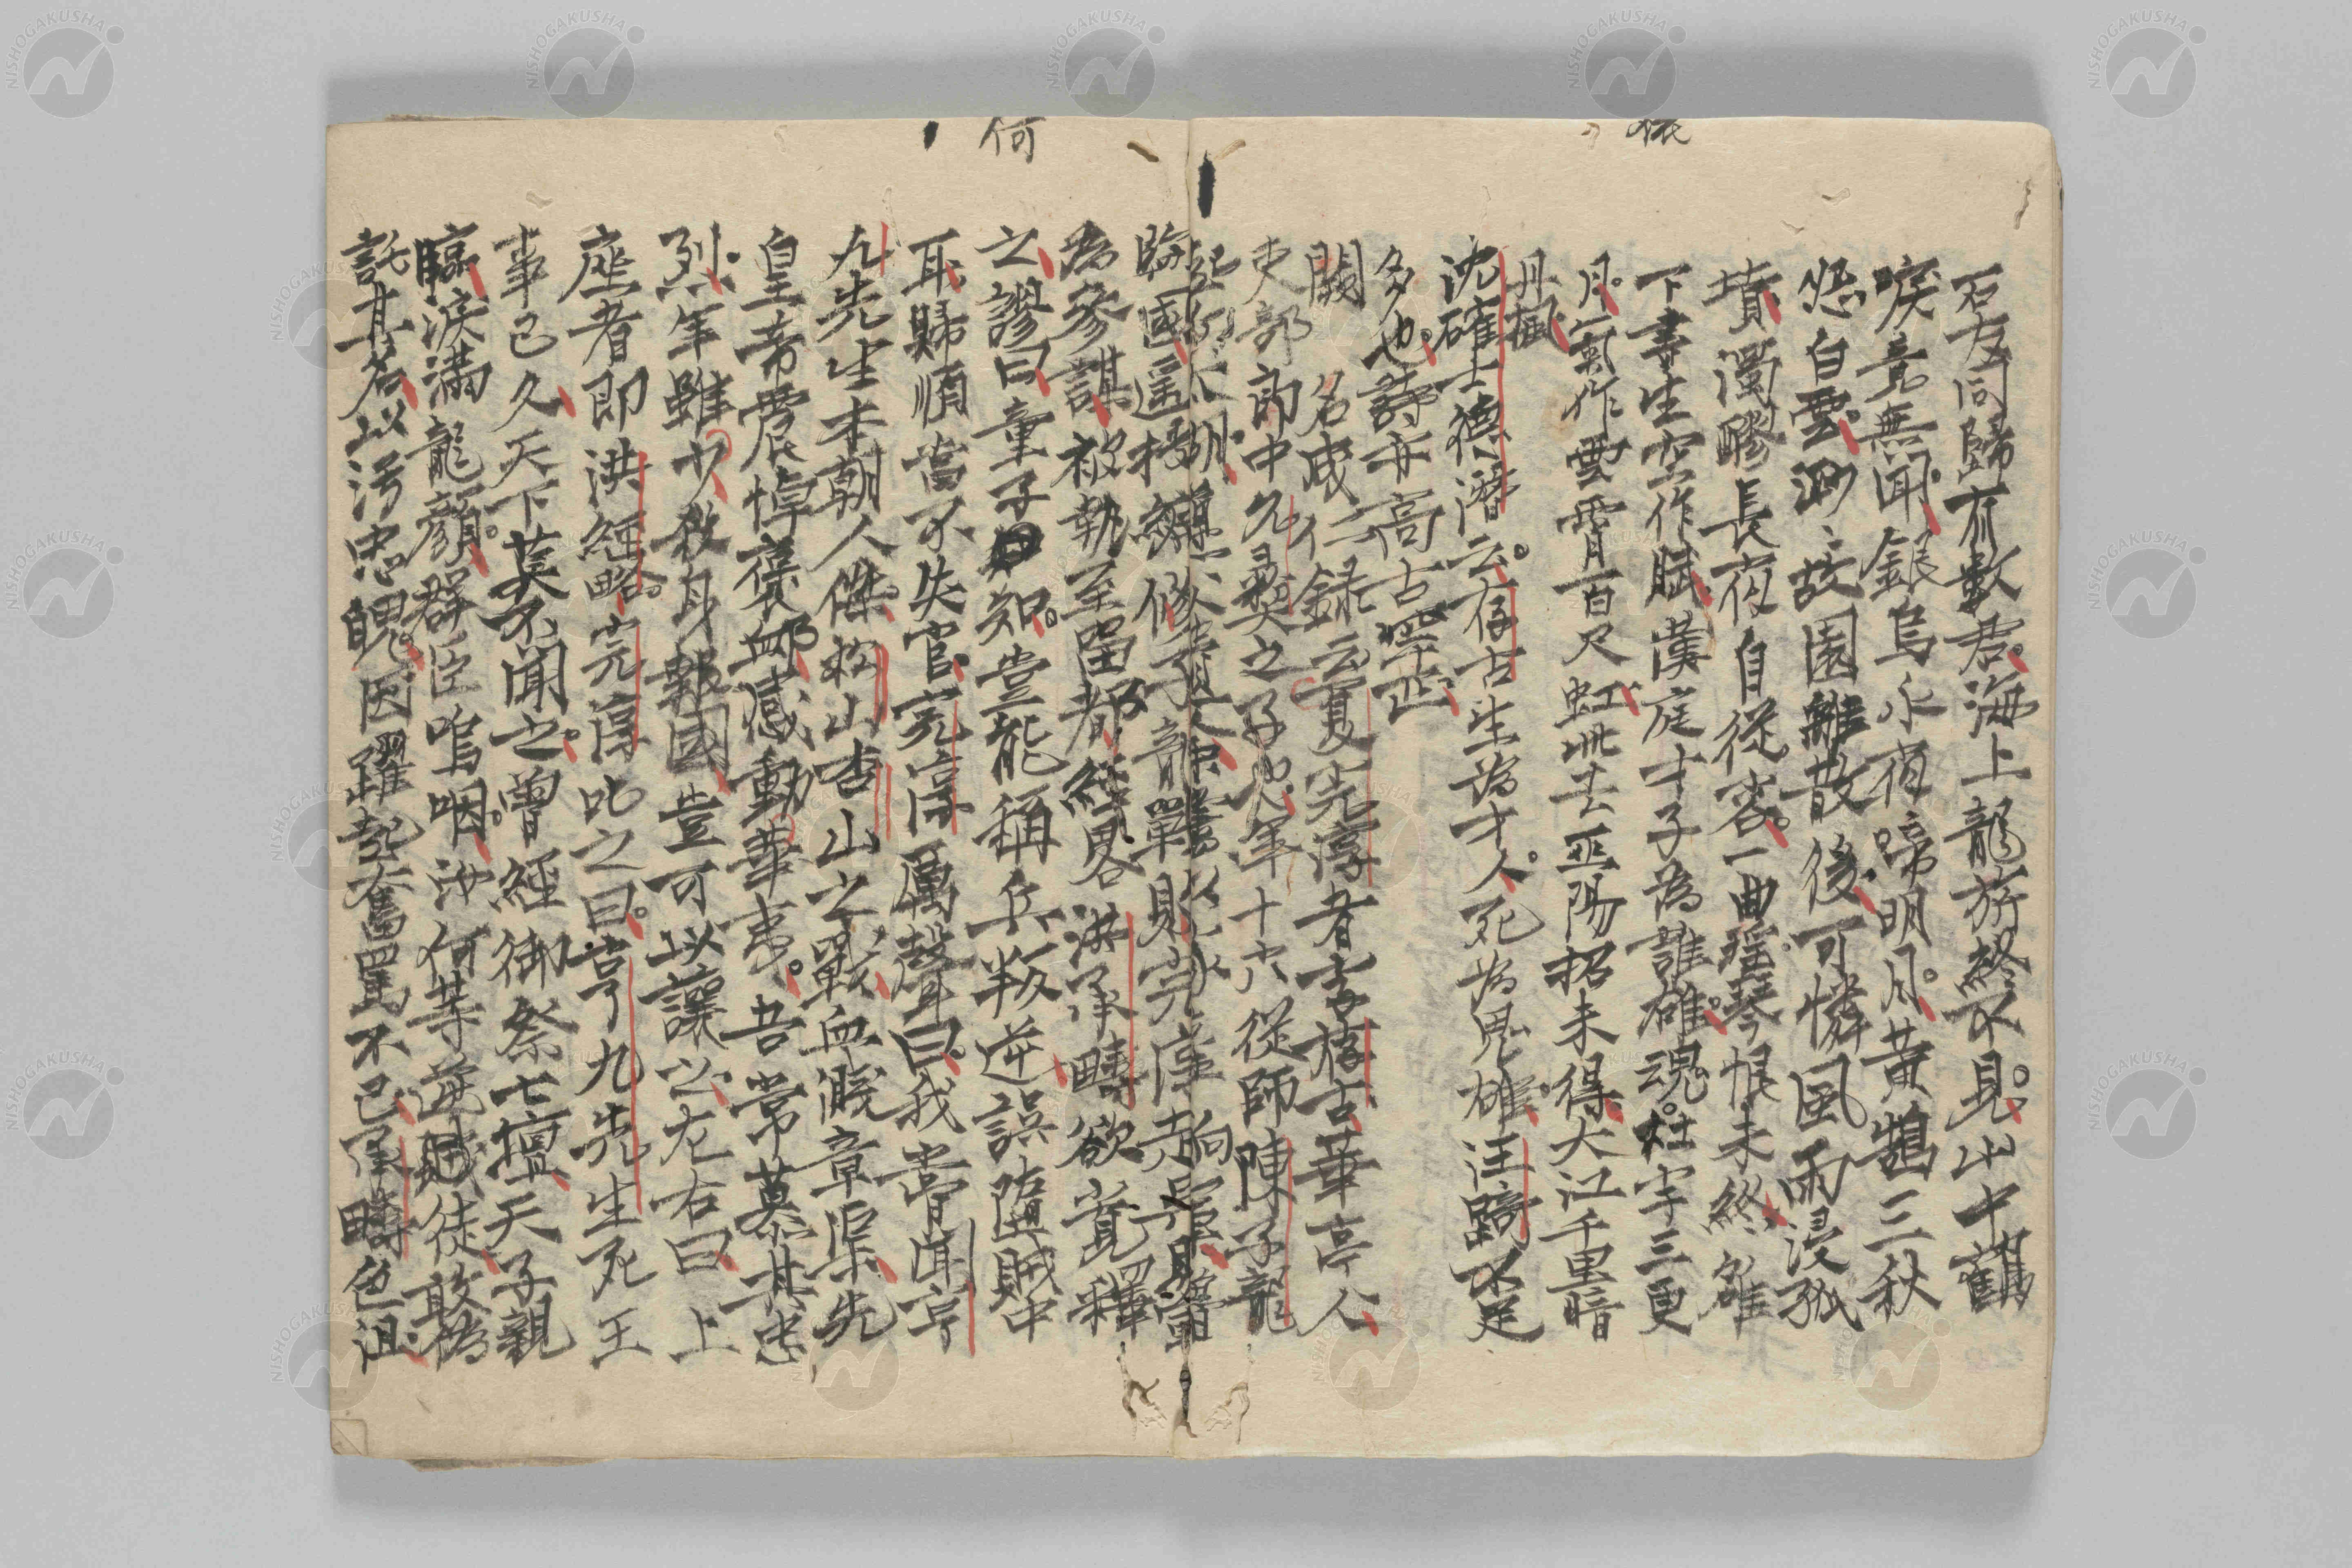 石友同歸有數君海上龍旂終不見山中鶴
唳竟無聞銀烏永夜啼明月黃鵠三秋
怨白雲
渺ヽ故園離散後可憐風雨浸孤
墳濁醪長夜自從容一曲瑤琴恨未終雒
下書生空作賦漢庭才子為誰雄魂
宇三更
月氣作雲霄百尺虹此去巫陽招未得大江千里暗
丹楓
沈確士德潛云存古生為才人死為鬼雄汪踦不足
多也詩亦高古罕匹
闕名成仁録云夏完淳者字存古華亭人
吏部郎中允彝之子也年十六從師陳子龍
起
為參謀被執至留都經畧洪承疇欲寛釋
之謬曰童子何知豈能稱兵叛逆誤墮賊中
耳歸順當不失官完淳厲聲曰我嘗聞亨
九先生本朝人傑松山杏山之戰血濺章渠先
皇帝震悼褒卹感動華夷吾常慕其忠
烈年雖少殺身報國豈可以讓之左右曰上
座者即洪經略完淳叱之曰亨九先生死王
事已久天下莫不聞之曽經御祭七壇天子親
臨淚滿龍顔群臣嗚咽汝何等逆賊徒敢偽
託其名以汚忠魄因躍起奮罵不已承疇色沮
何